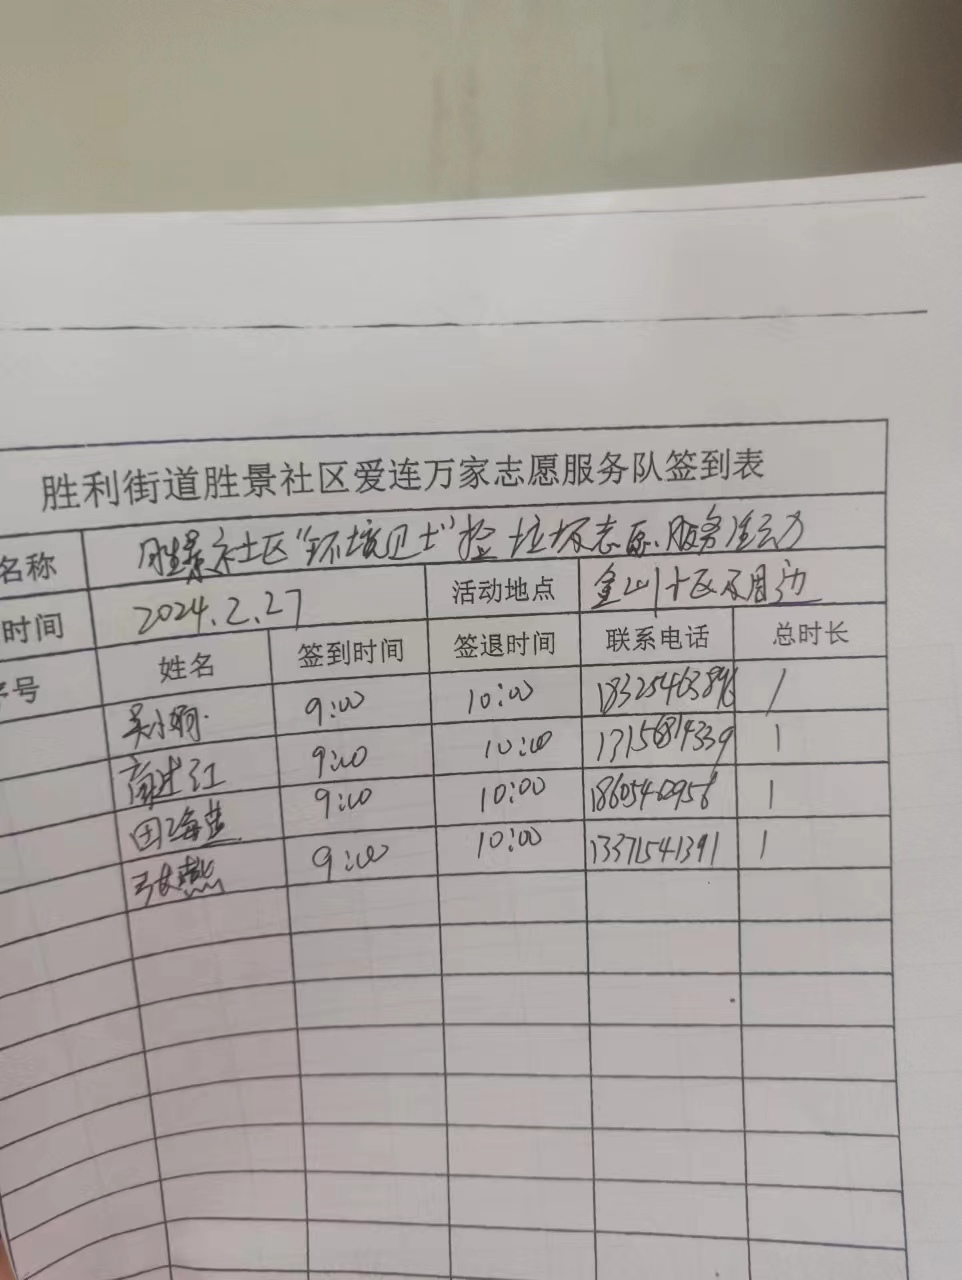 胜利街道胜景社区爱连万家志愿服务队签到表
名称 胜景社区“环境卫士”捡垃圾志愿服务活动
时间 2024.2.27 活动地点 金山小区及周边
序号 姓名 签到时间 签退时间 联系电话 总时长
9:00 10:00 18325463896 1
9:00 10:00 13156814339 1
田海燕 9:00 10:00 1
张燕 9:00 10:00 13371541391 1